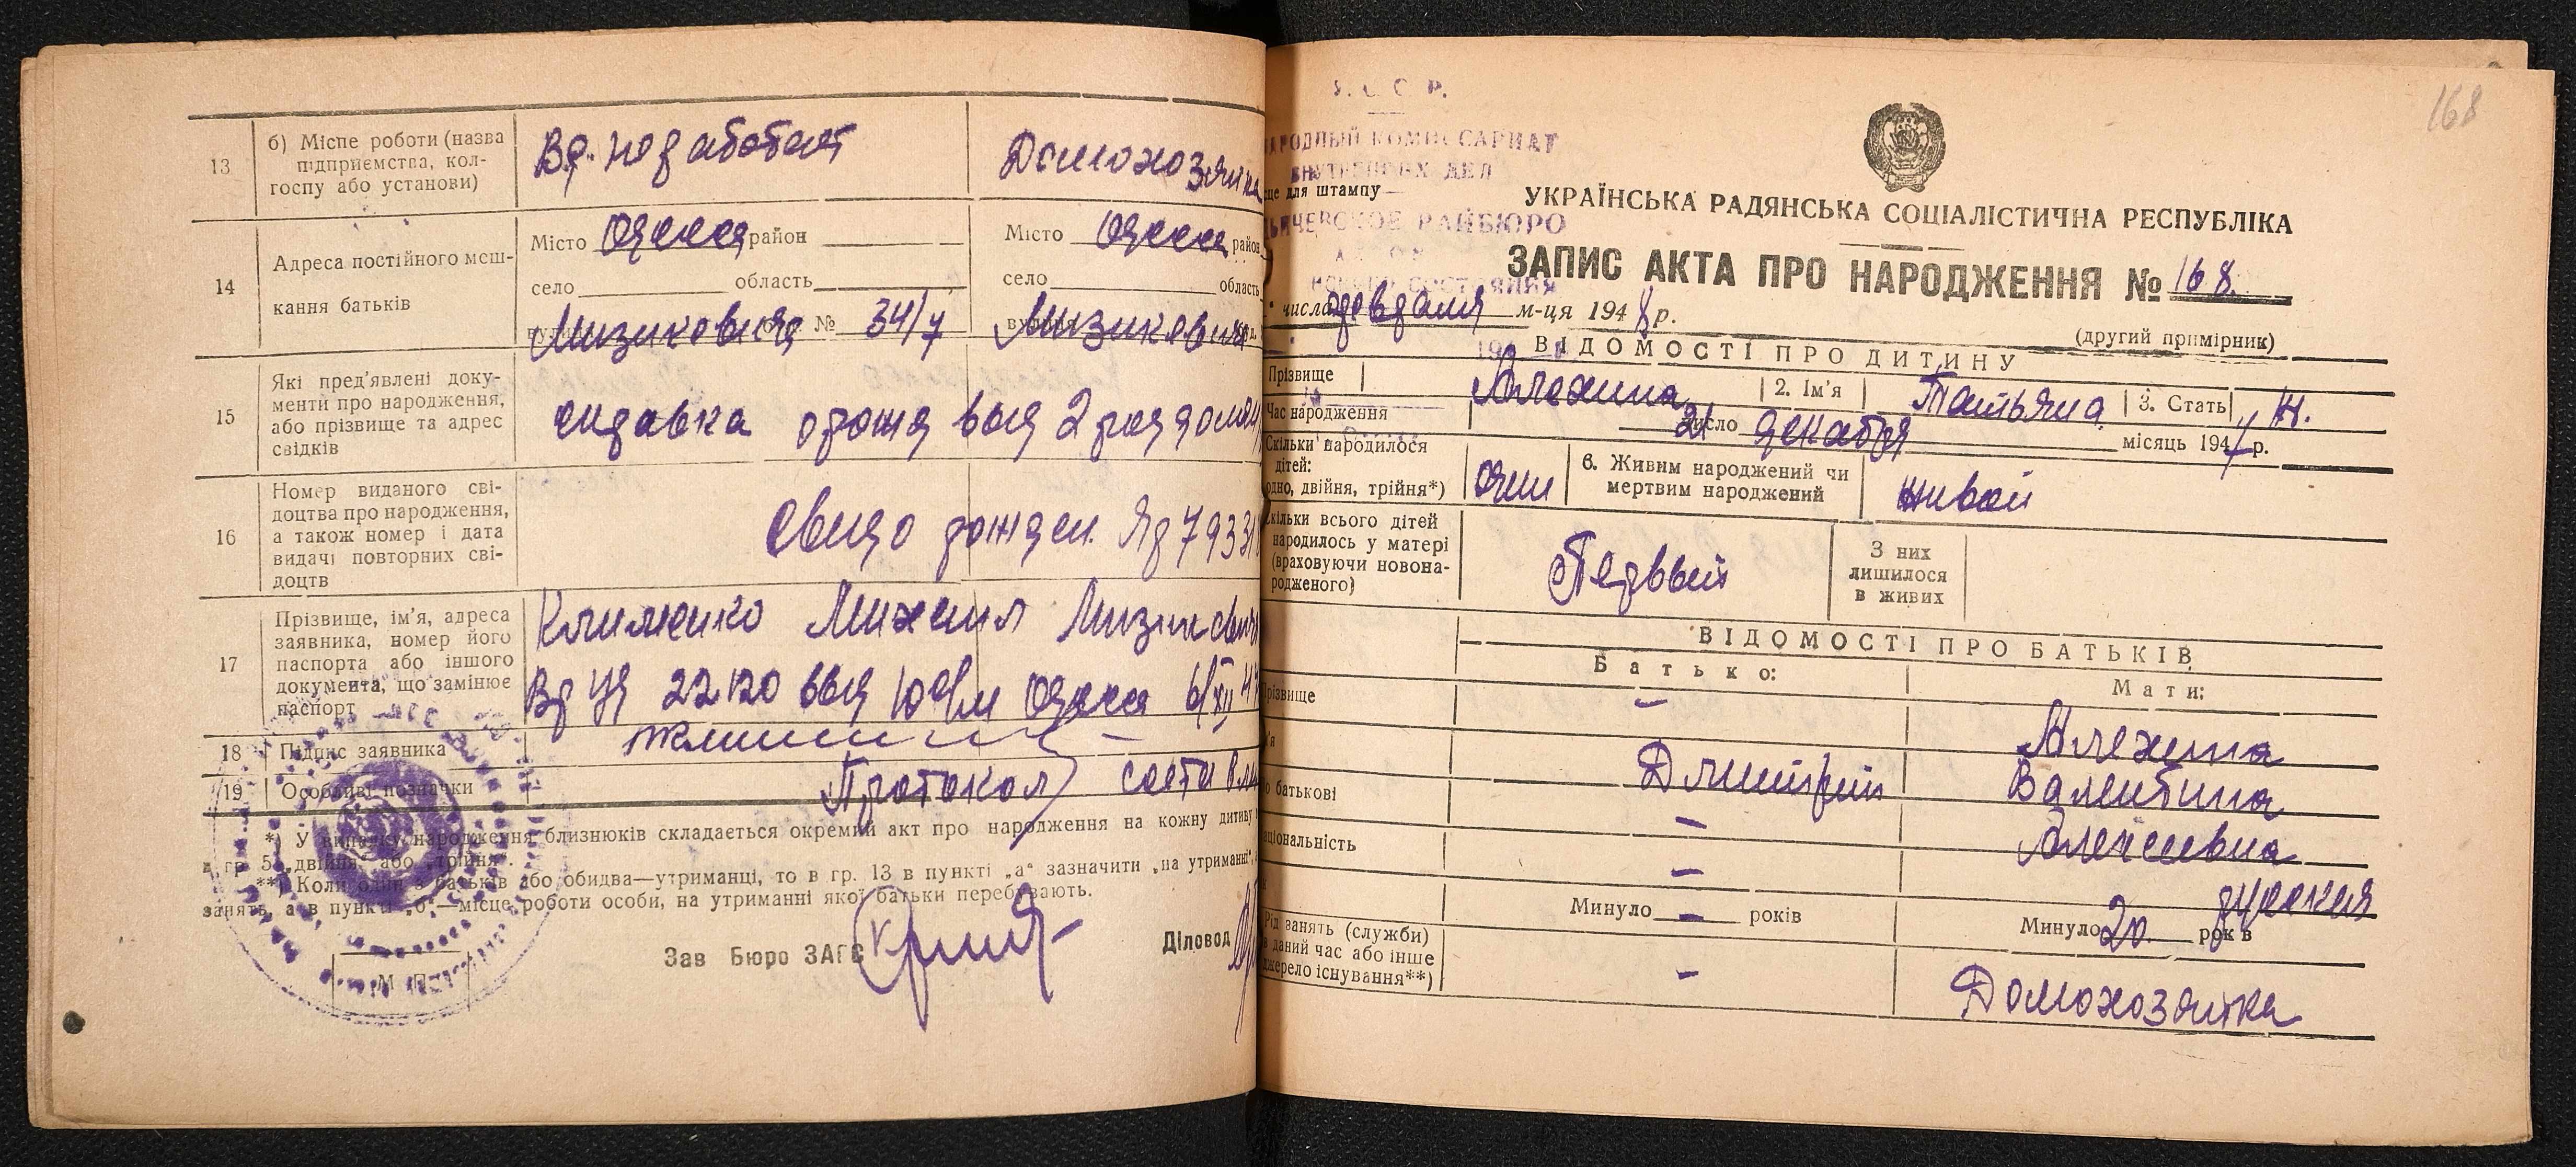 13
б) Місце роботи (назва
підприємства, кол-
госпу або установи)
Вр. не работает
Домохозяйка
14
Адреса постійного меш-
кання батьків
Місто Одесса район
село область
№ 34/7
Місто Одесса район
село область
15
Які пред'явлені доку-
менти про народження,
або прізвище та адрес
свідків
справка о рожд выд 2 род домом
16
Номер виданого сві-
доцтва про народження,
а також номер і дата
видачі повторних сві-
доцтв
рожден.
17
Прізвище, ім'я, адреса
заявника, номер його
паспорта або іншого
документа, що замінює
паспорт
Клименко Михаил
22120 выд 10 о/м Одесса
18
Підпис заявника
19
Особливі позначки
Протокол
*) У випадку народження близнюків складається окремий акт про народження на кожну дитину
в гр. 5 „двійня" або „трійня".
**) Коли один з батьків або обидва—утриманці, то в гр. 13 в пункті „а" зазначити „на утриманні",
занять, а в пункті „б"—місце роботи особи, на утриманні якої батьки перебувають.
Зав Бюро ЗАГС
Діловод
М П
168
У. С. С. Р.
НАРОДНЫЙ КОМИССАРИАТ
ВНУТРЕННИХ ДЕЛ
для штампу
РАЙБЮРО
УКРАЇНСЬКА РАДЯНСЬКА СОЦІАЛІСТИЧНА РЕСПУБЛІКА
ЗАПИС АКТА ПРО НАРОДЖЕННЯ № 168.
числа февраля м-ця 1948 р.
(другий примірник)
ВІДОМОСТІ ПРО ДИТИНУ
Прізвище
Алехина
2. Ім'я
Татьяна
3. Стать
Ж.
Час народження
21 число декабря місяць 1947 р.
Скільки народилося
дітей:
одно, двійня, трійня*)
Один
6. Живим народжений чи
мертвим народжений
живой
Скільки всього дітей
народилось у матері
(враховуючи новона-
родженого)
Первый
З них
лишилося
в живих
ВІДОМОСТІ ПРО БАТЬКІВ
Батько:
Мати:
Прізвище
–
Алехина
Дмитрий
Валентина
по батькові
–
Алексеевна
національність
–
русская
Минуло – років
Минуло 20. років
Рід занять (служби)
в даний час або інше
джерело існування**)
–
Домохозяйка